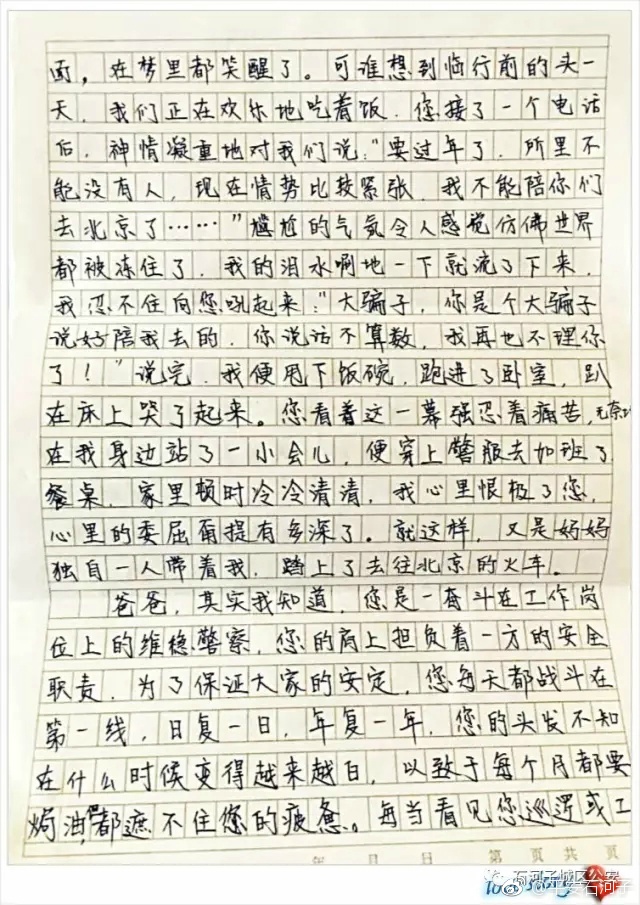 面，在梦里都笑醒了。可谁想到临行前的头一
天，我们正在欢乐地吃着饭，您接了一个电话
后，神情凝重地对我们说："要过年了，所里不
能没有人，现在情势比较紧张，我不能陪你们
去北京了……"尴尬的气氛令人感觉仿佛世界
都被冻住了，我的泪水唰地一下就流了下来，
我忍不住向您吼起来："大骗子，你是个大骗子
说好陪我去的，你说话不算数，我再也不理你
了！"说完，我便甩下饭碗，跑进了卧室，趴
在床上哭了起来。您看着这一幕强忍着痛苦，无奈地
在我身边站了一小会儿，便穿上警服去加班了
餐桌，家里顿时冷冷清清，我心里恨极了您，
心里的委屈甭提有多深了。就这样，又是妈妈
独自一人带着我，踏上了去往北京的火车。
爸爸，其实我知道，您是一奋斗在工作岗
位上的维稳警察，您的肩上担负着一方的安全
职责，为了保证大家的安定，您每天都战斗在
第一线，日复一日，年复一年，您的头发不知
在什么时候变得越来越白，以致于每个月都要
焗油，都遮不住您的疲惫。每当看见您巡逻或工
年 月 日 第 页 共 页
石河子城区公安